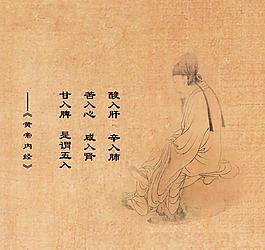 酸入肝 辛入肺
苦入心 咸入肾
甘入脾 是谓五入
——《黄帝内经》